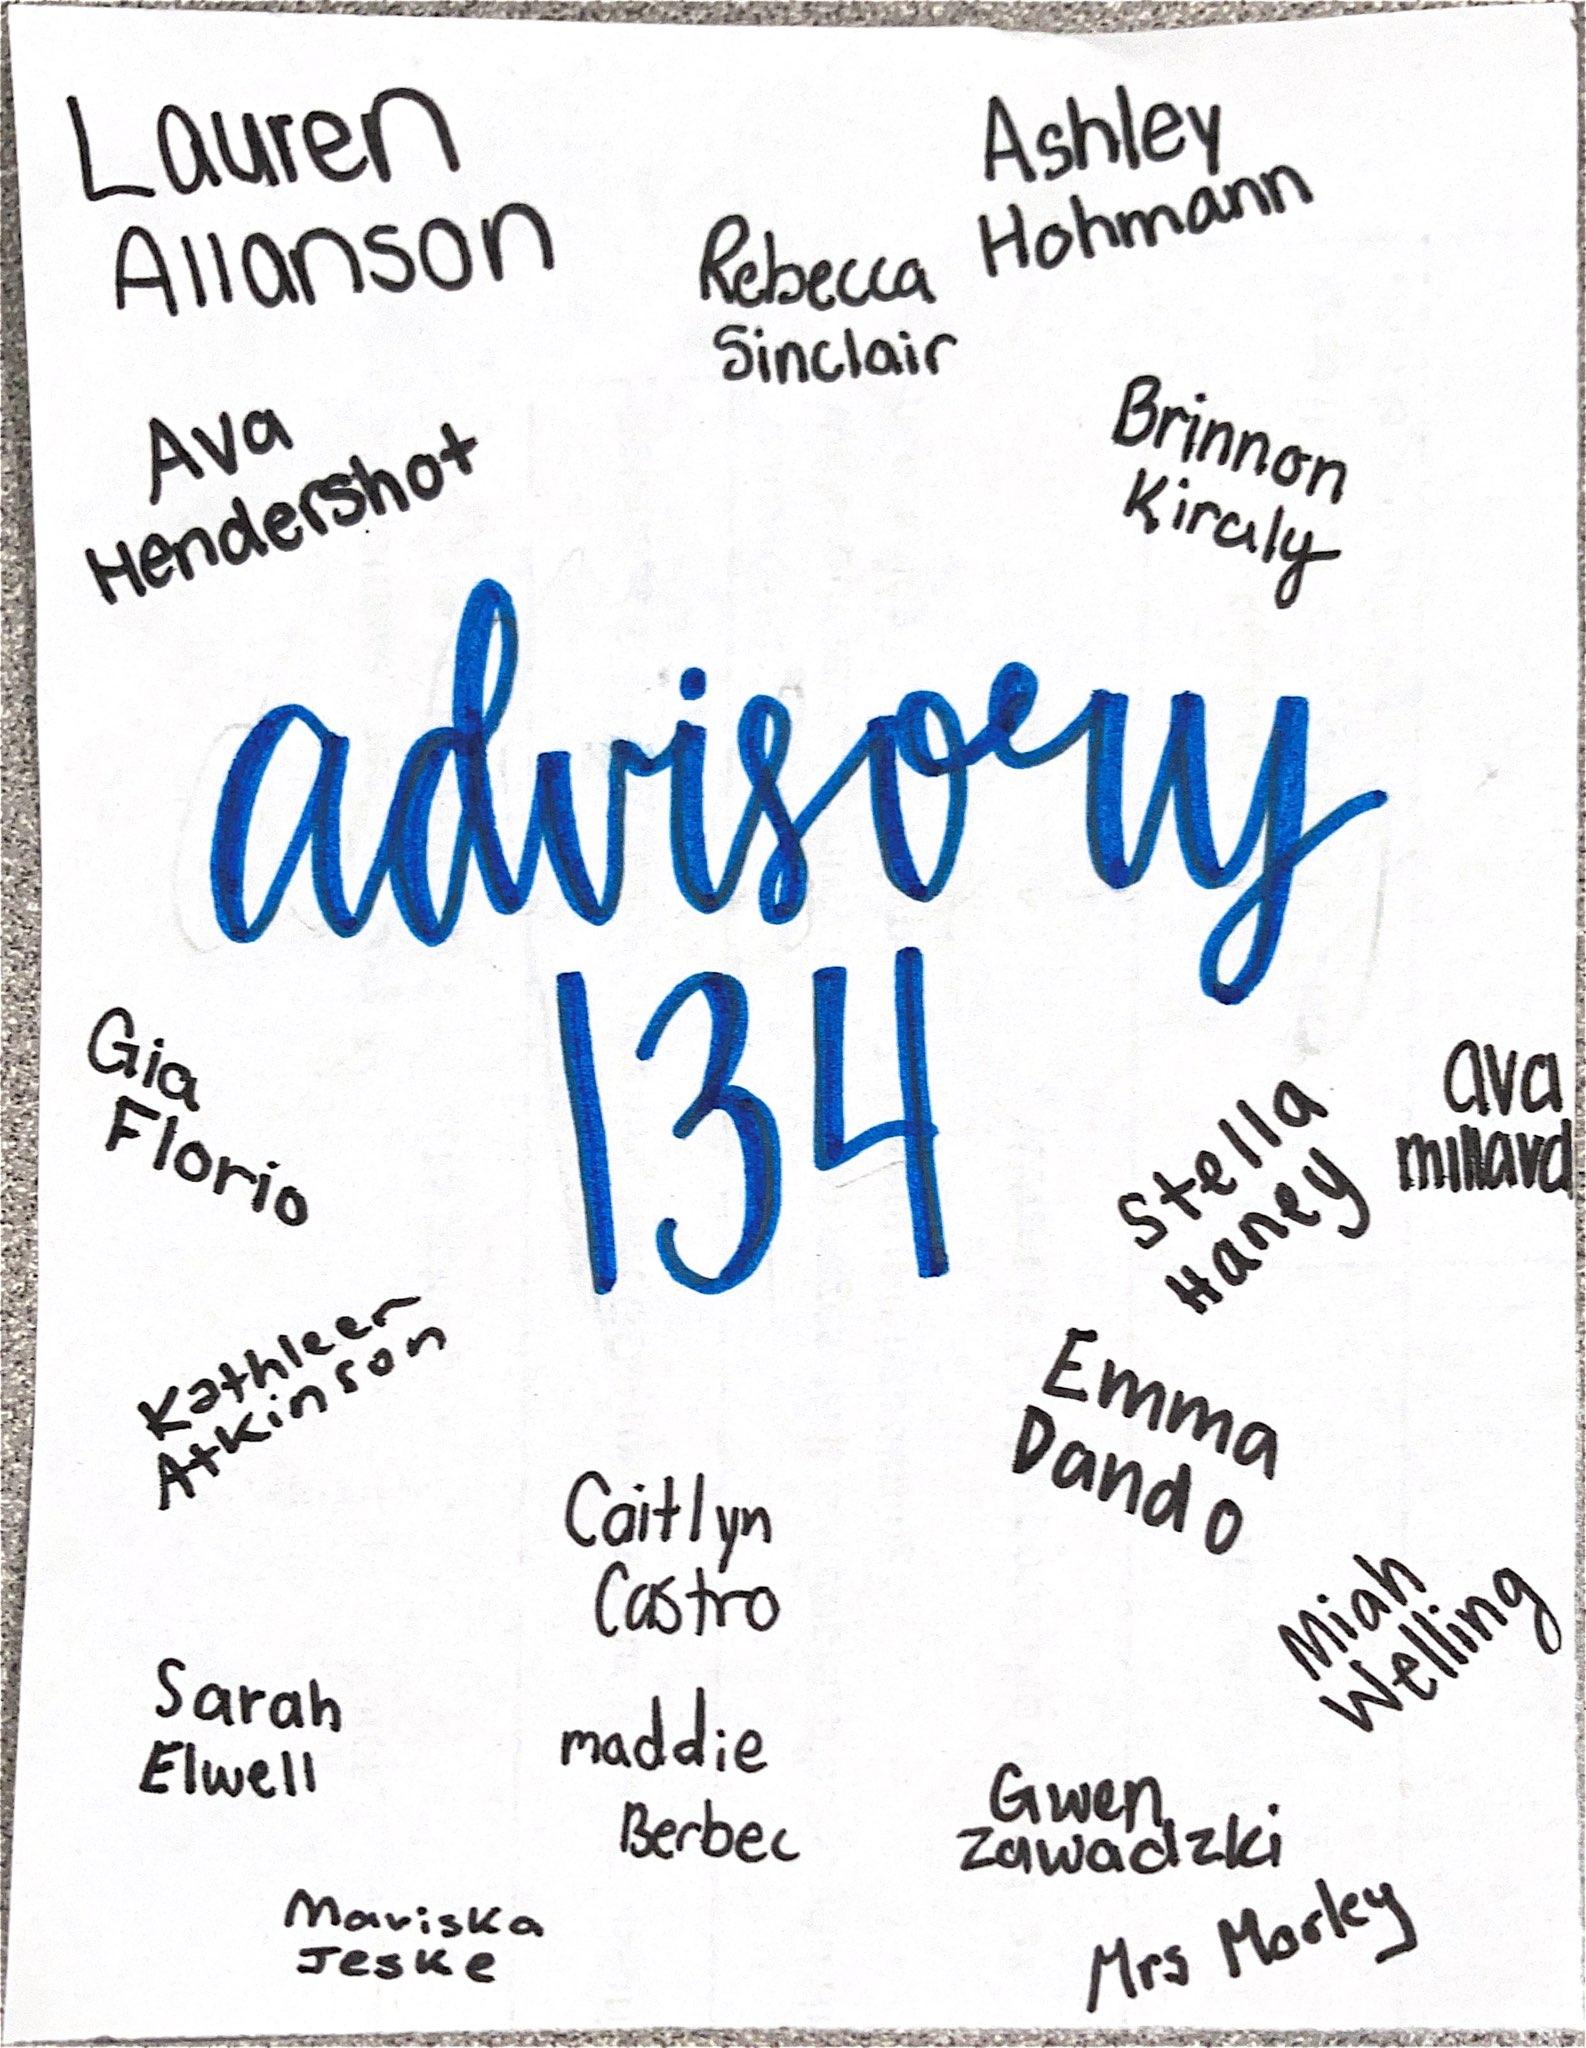 Lauren
Allanson
Ashley
Hohmann
Rebecca
Sinclair
Ava
Hendershot
Brinnon
Kiraly
advisory
134
Gia
Florio
ava
millard
Stella
Haney
Kathleen
Atkinson
Emma
Dando
Caitlyn
Castro
Miah
Welling
Sarah
Elwell
maddie
Berbec
Gwen
Zawadzki
Mariska
Jeske
Mrs Morley